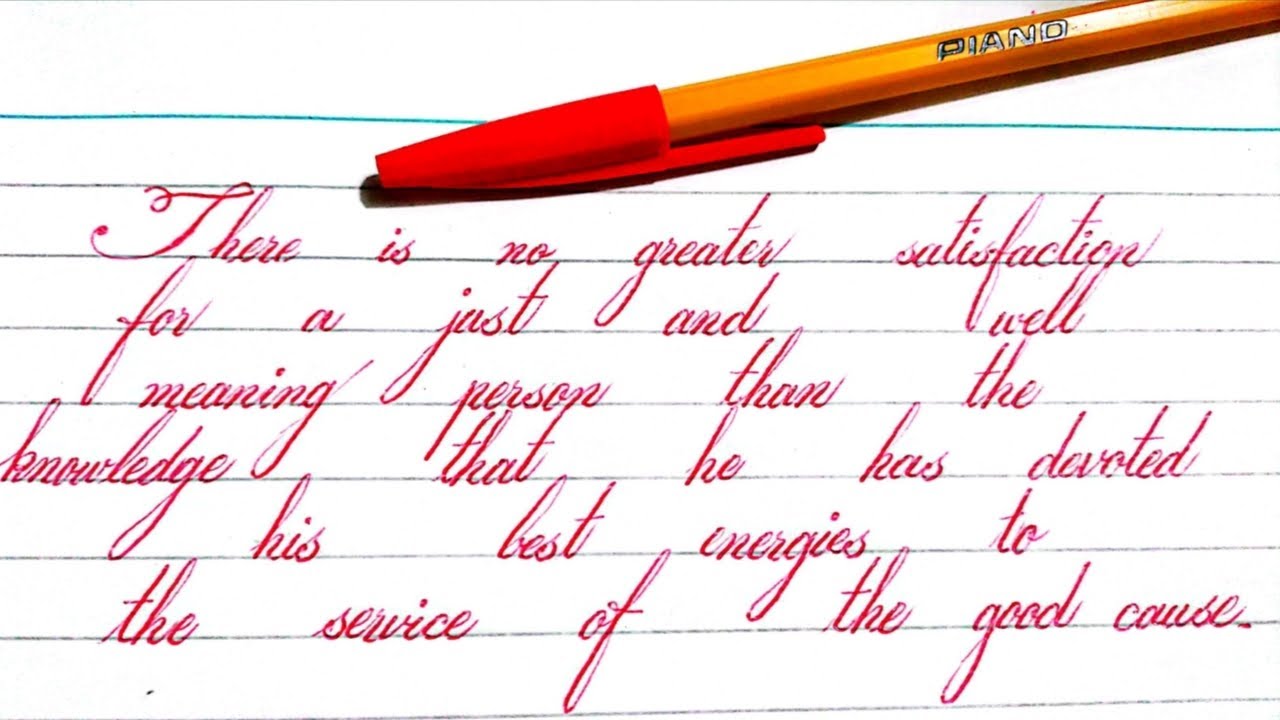 PIANO
There is no greater satisfaction
for a just and well
meaning person than the
knowledge that he has devoted
his best energies to
the service of the good cause.